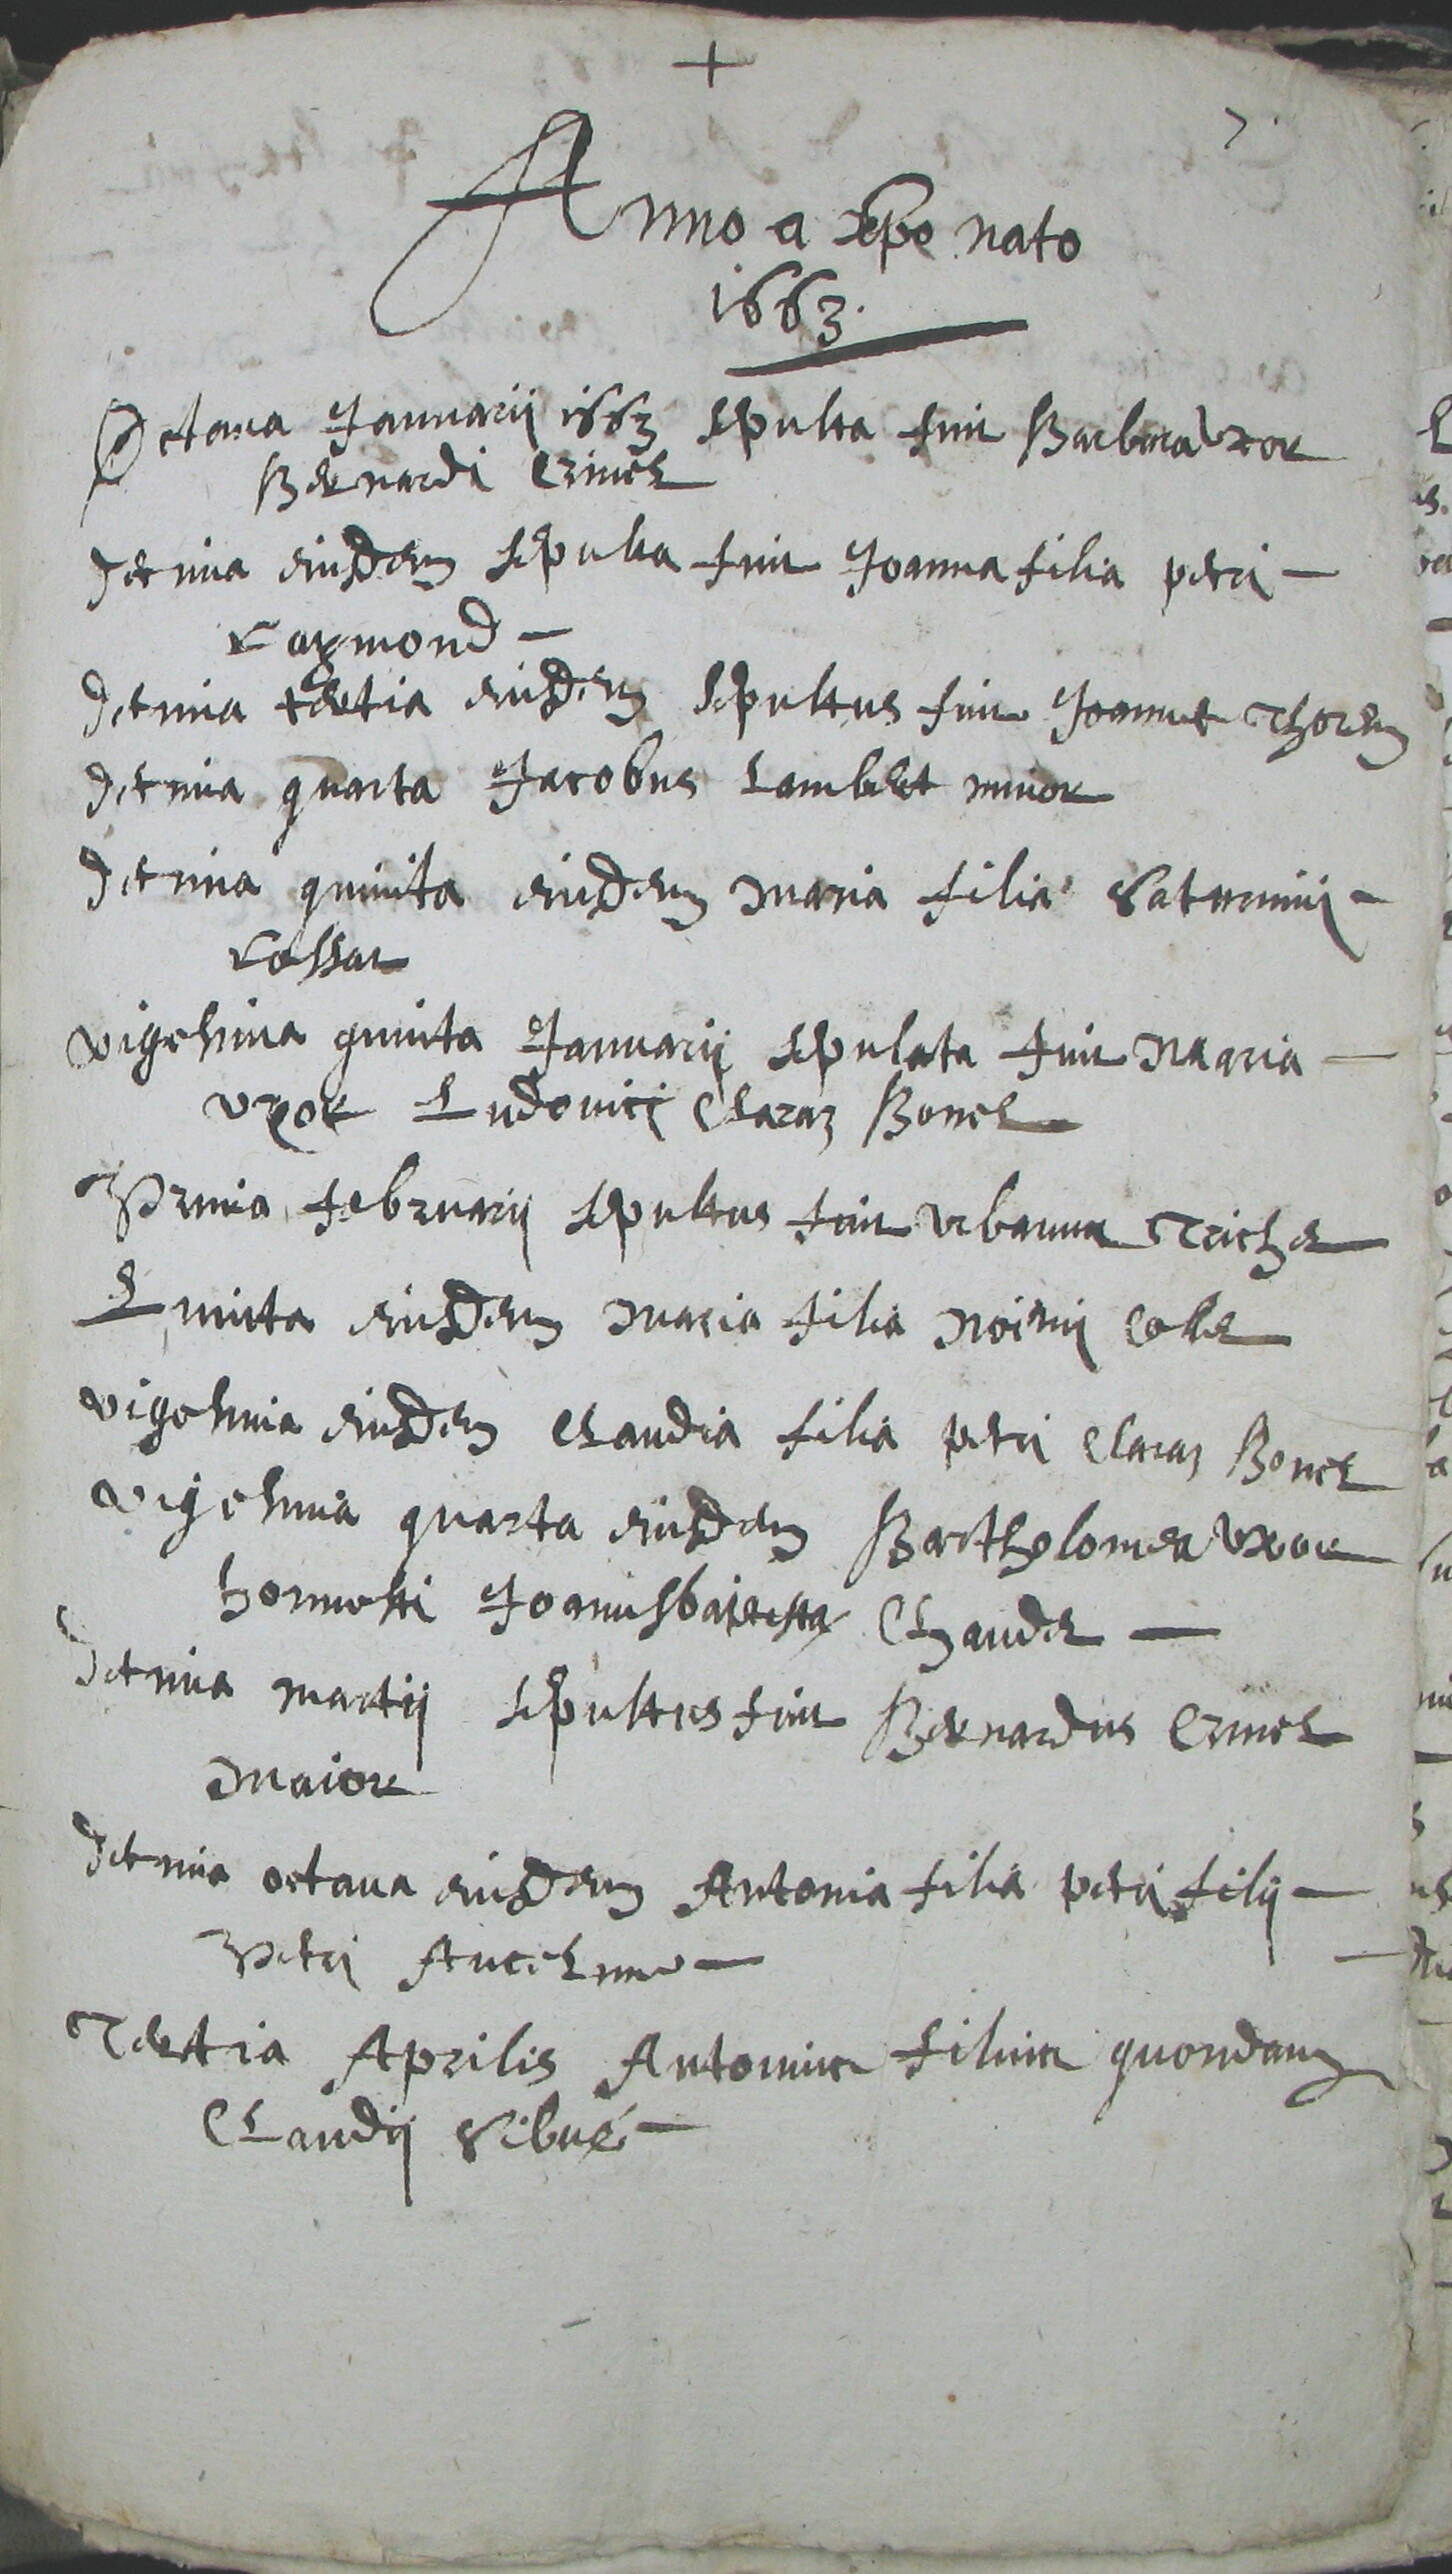 +
7.
Anno a xpo nato
1663.
Octaua Januarij 1663 sepulta fuit Barbara vxor
Bernardi Crinel
Decima eiusdem sepulta fuit Joanna filia petri —
raymond —
Decima tertia eiusdem sepultus fuit Joannes
Decima quarta Jacobus Lambert minor
Decima quinta eiusdem Maria filia Saturnini —
vigesima quinta Januarij sepulata fuit Maria —
vxor Ludouici Claraz Bonel
Prima februarij sepultus fuit vrbanus
Quinta eiusdem Maria filia
vigesima eiusdem Claudia filia petri Claraz Bonel
vigesima quarta eiusdem Bartholomea vxor
honnesti Joannisbaptistæ Chauder —
Decima martij sepultus fuit Bernardus Crinel
Maior
Decima octaua eiusdem Antonia filia petri filij —
Petri —
Tertia Aprilis Antonius filius quondam
Claudij Sibué —